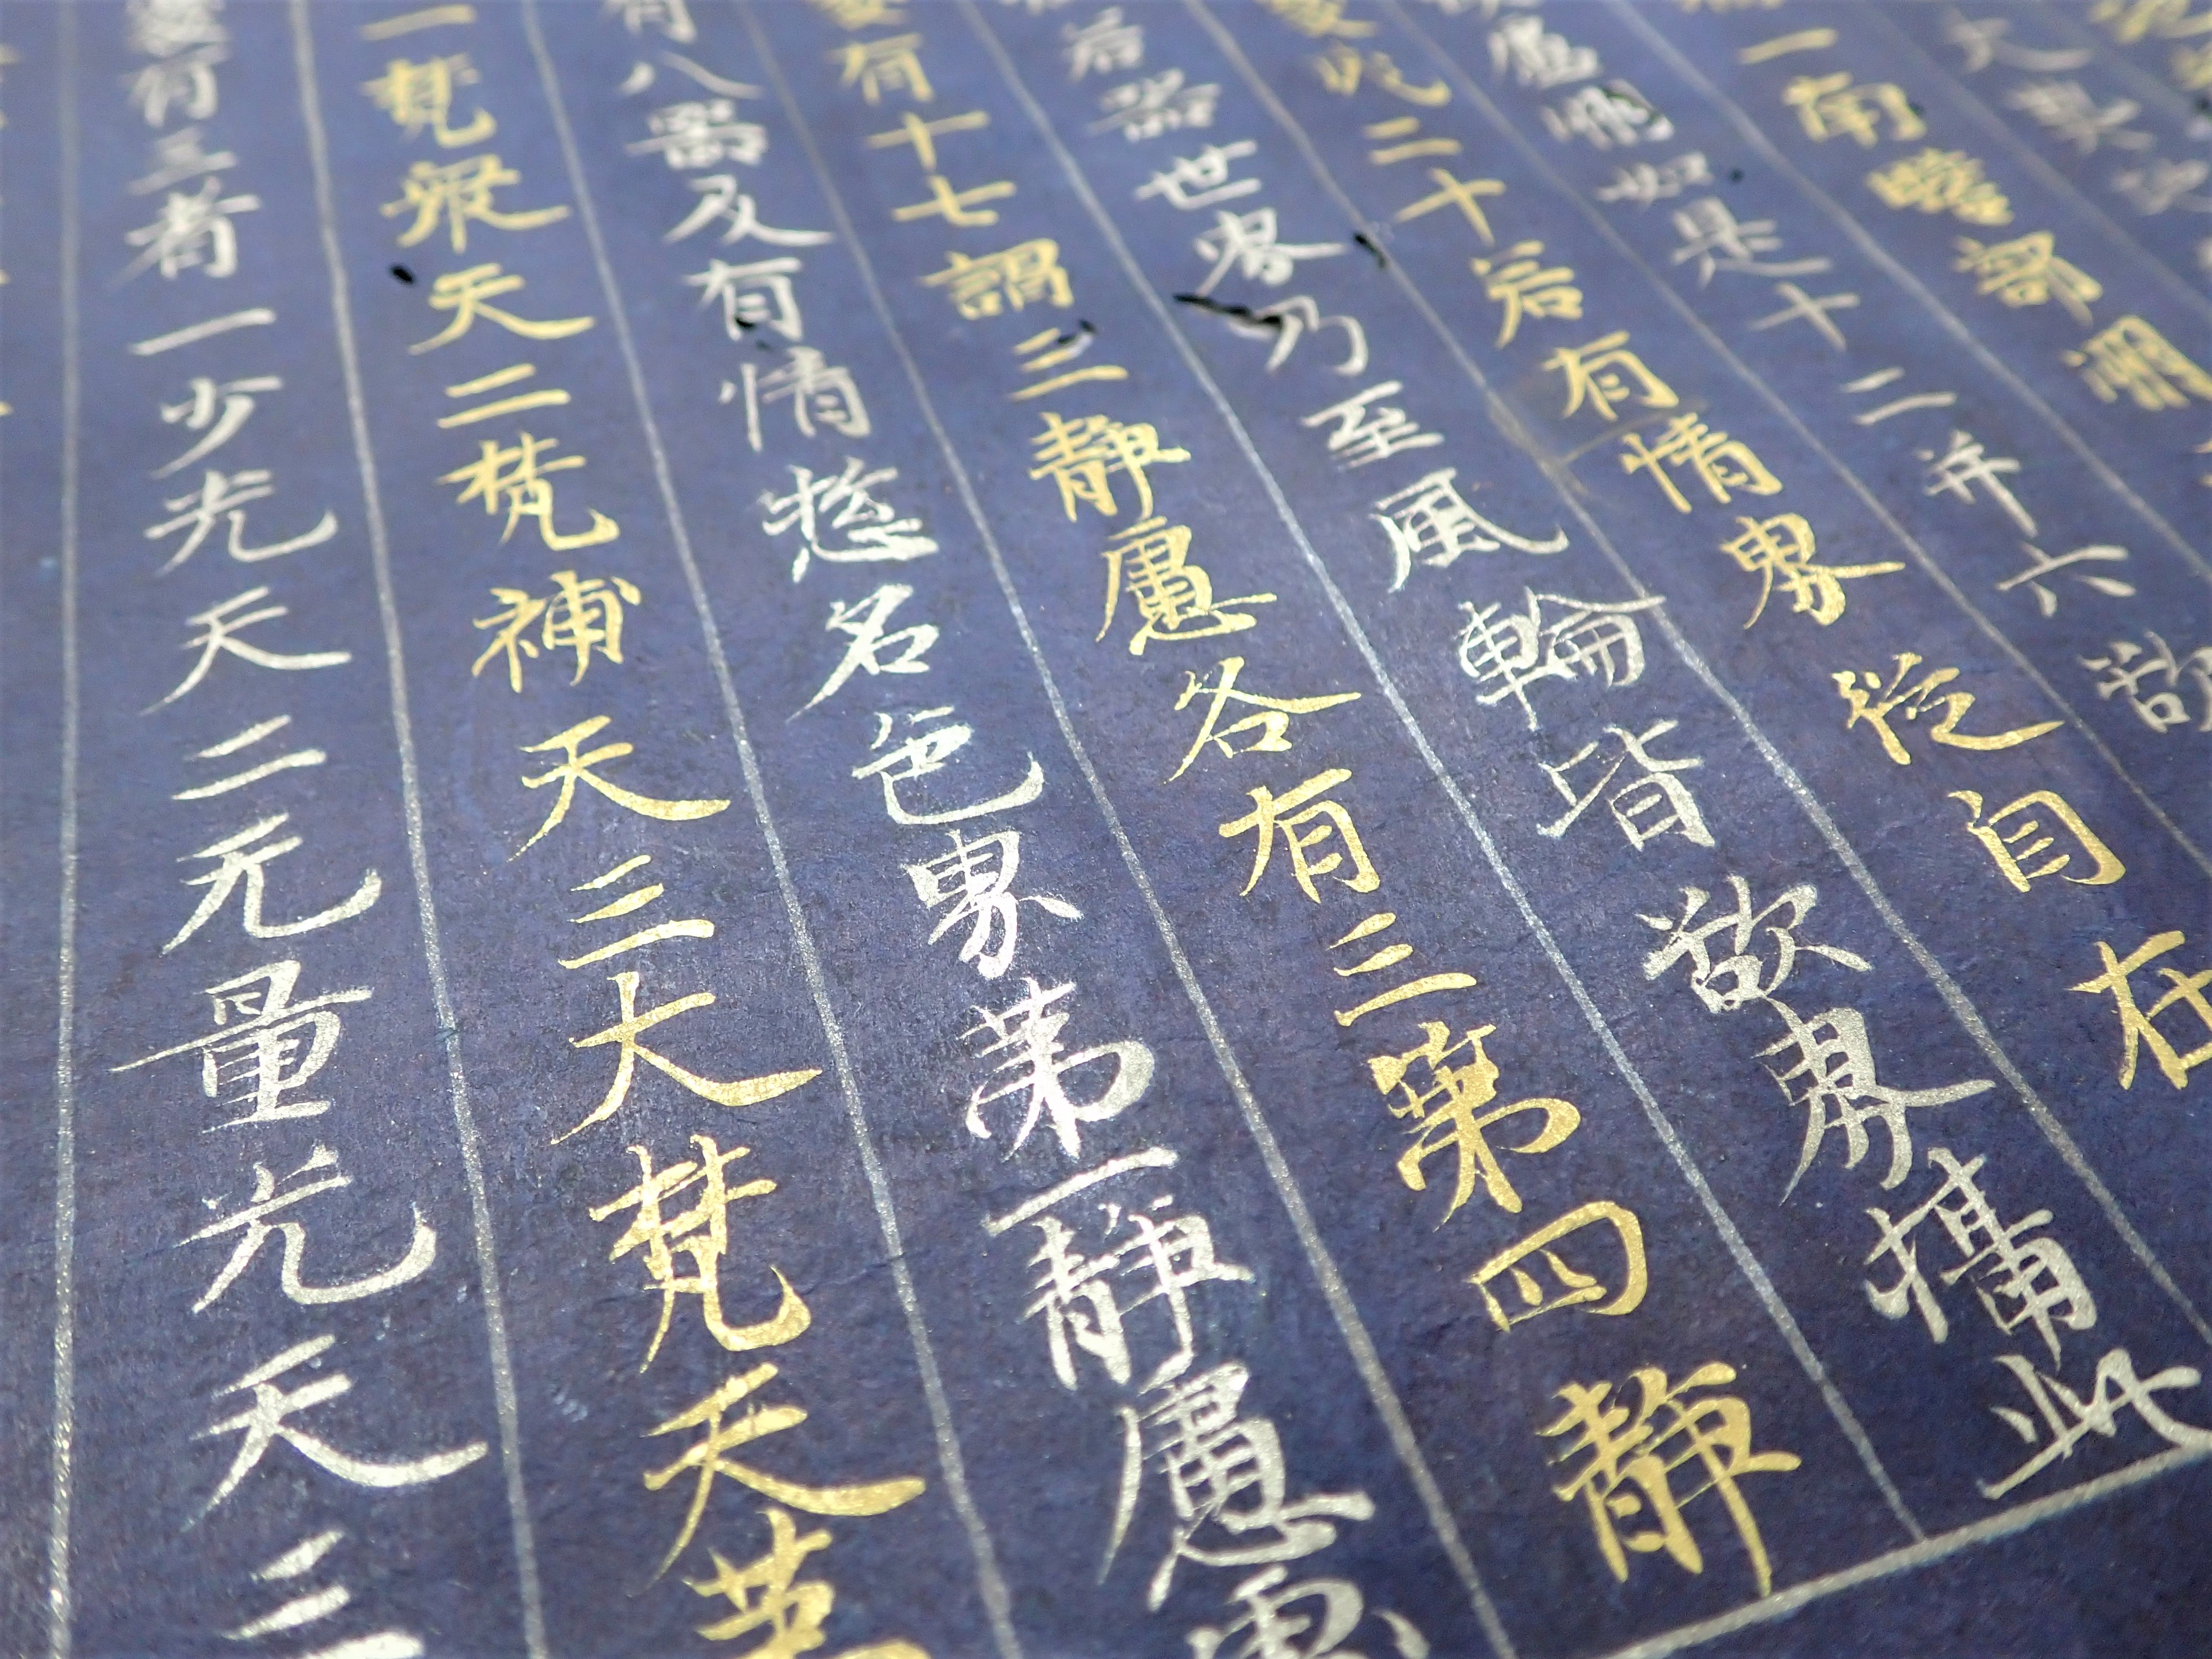 一南贍部洲
處別如是十二并六欲
處成二十若有情界從自在
若器世界乃至風輪皆欲界攝此
處有十七謂三靜慮各有三第四靜
有八器及有情惣名色界第一靜慮處
一梵衆天二梵補天三大梵天第
慮有三者一少光天二无量光天三